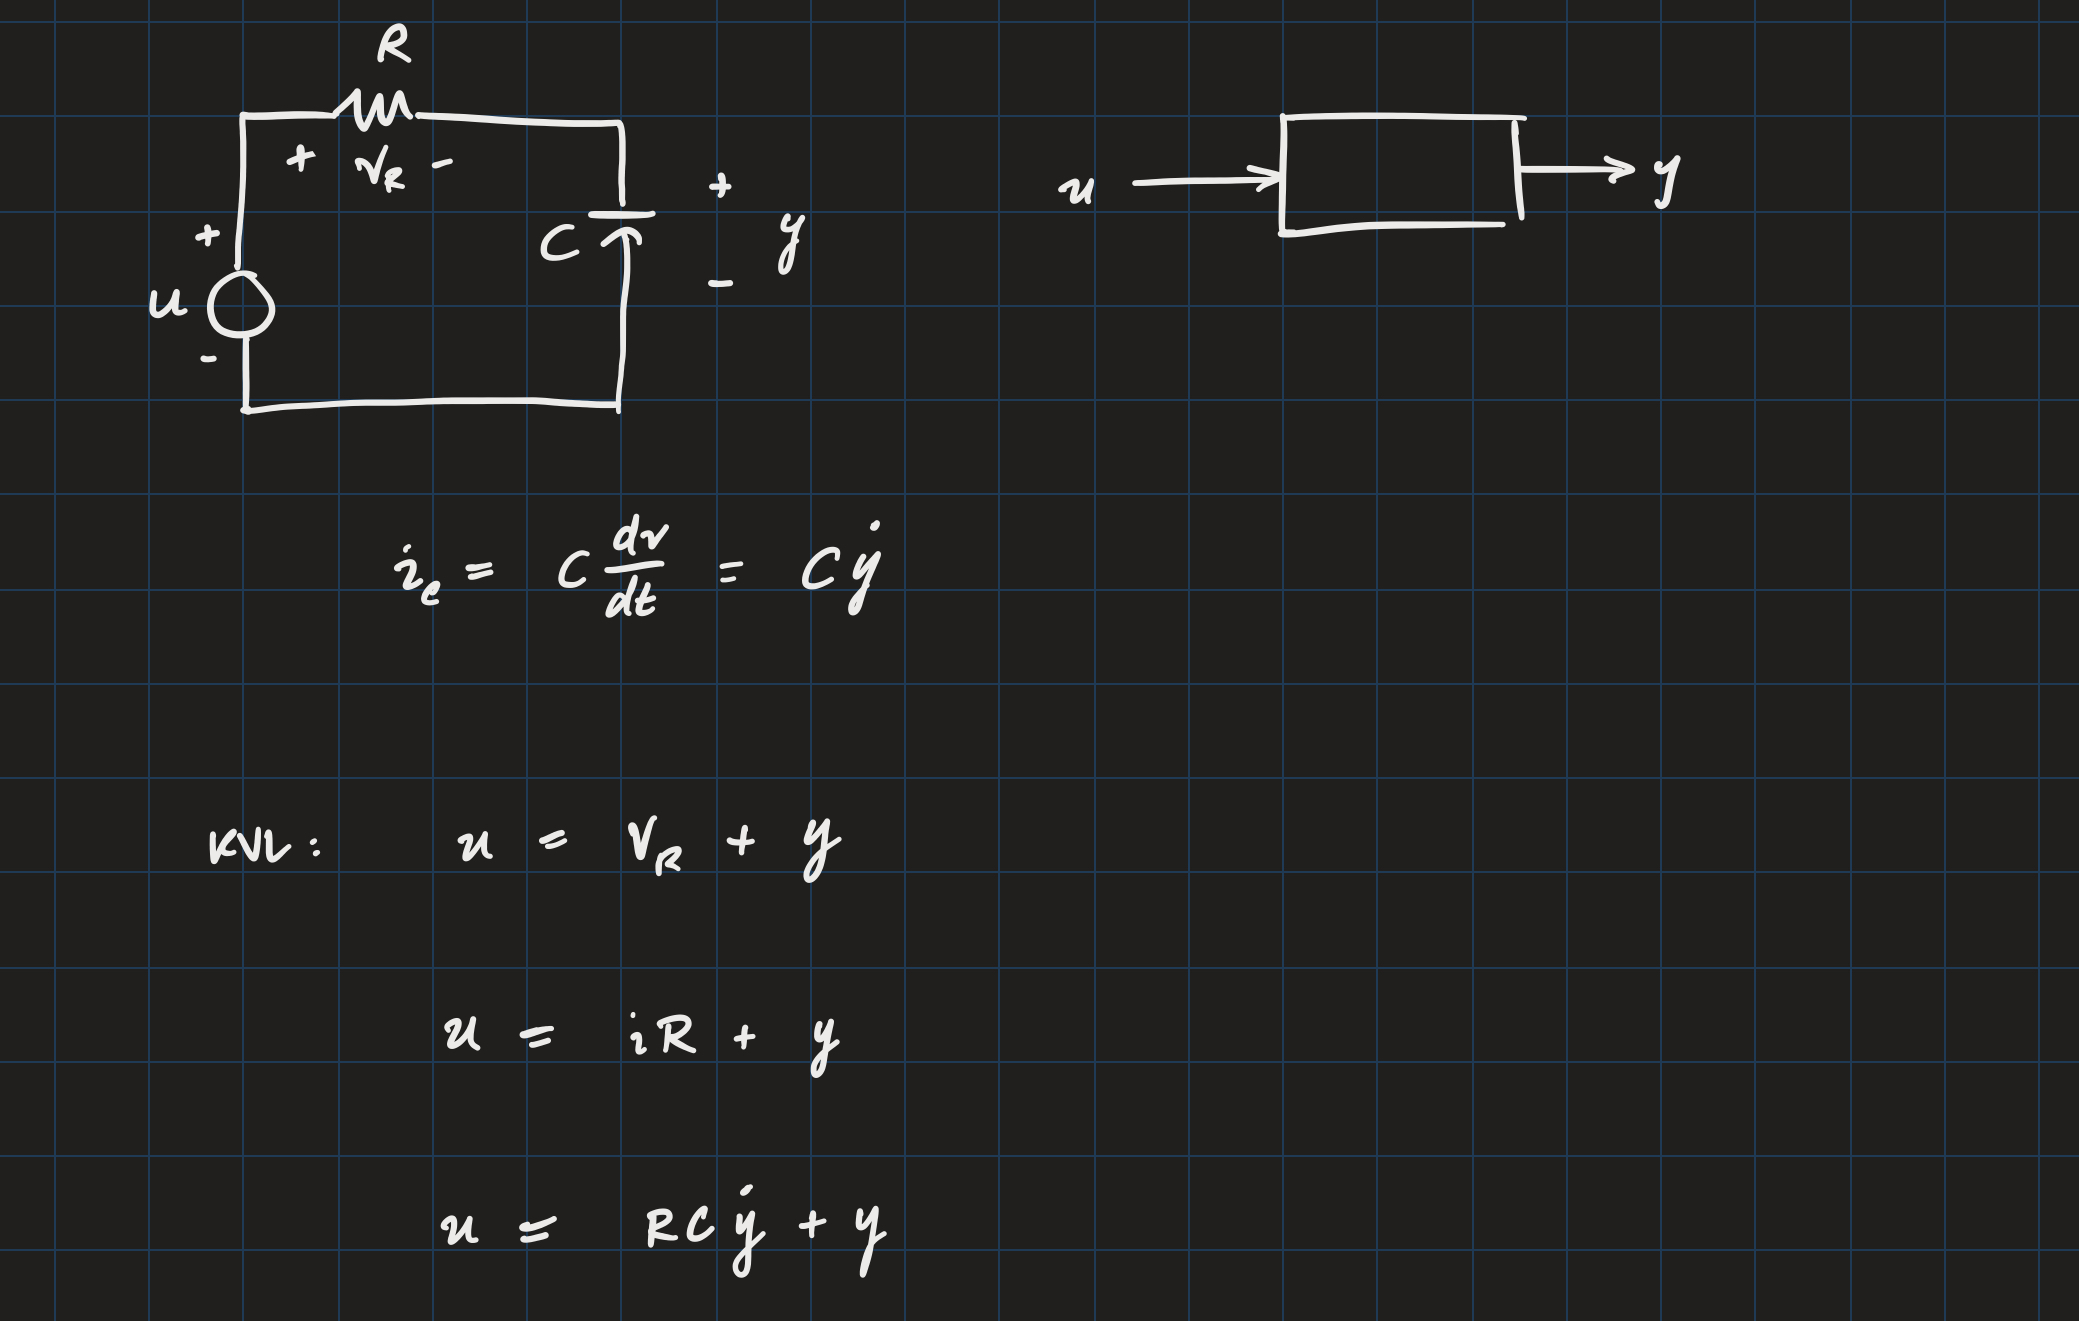 R
+ V_R -
+
u
-
C
+
y
-
u → y
i_c = C dv/dt = Cẏ
KVL: u = V_R + y
u = iR + y
u = RCẏ + y